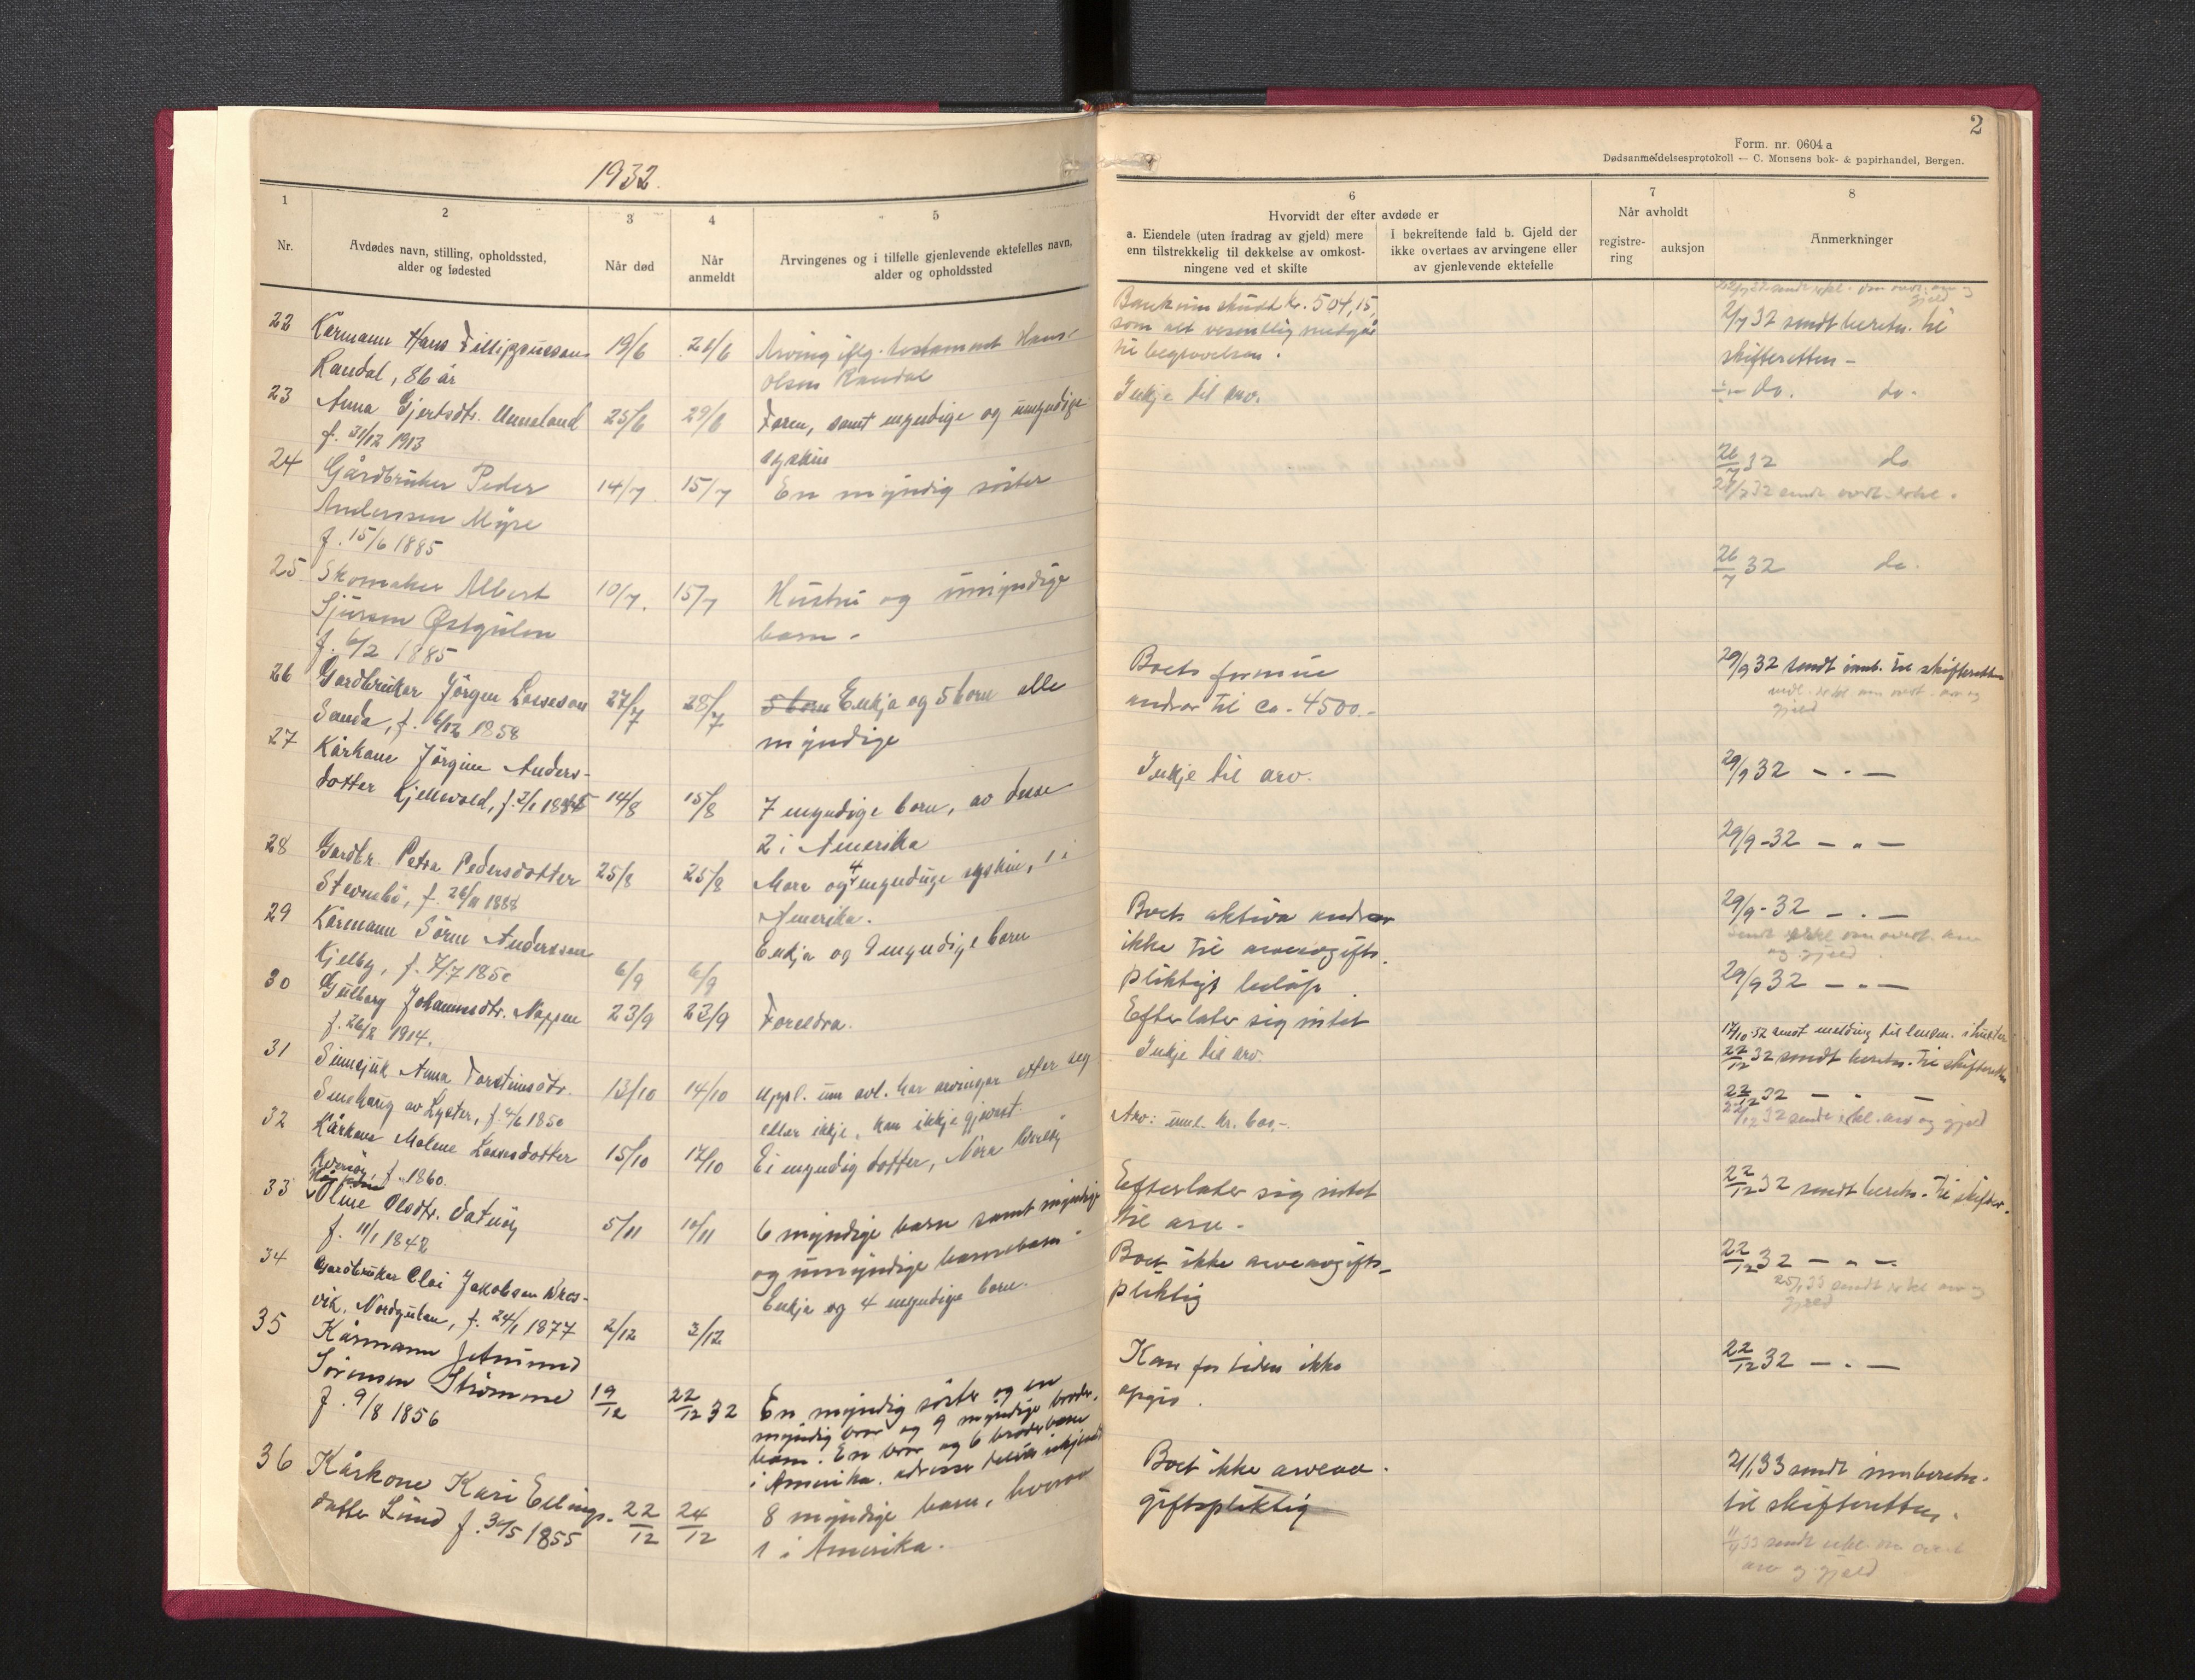 1932.
1
Nr.
2
Avdødes navn, stilling, opholdssted,
alder og fødested
3
Når død
4
Når
anmeldt
5
Arvingenes og i tilfelle gjenlevende ektefelles navn,
alder og opholdssted
22 Kårmann Hans Fillippussen 19/6 21/6 Arving iflg. testament Hans
Randal, 86 år olsen Randal
23 Anna Gjertsdtr. Unneland 25/6 29/6 Faren, samt myndige og umyndige
f. 31/12 1913 syskin
24 Gårdbruker Peder 14/7 15/7 En myndig søster
Anderssen Myre
f. 15/6 1885
25 Skomaker Albert 10/7. 15/7 Hustru og umyndige
Sjursen Østgulen barn -
f. 6/2 1885
26 Gardbrukar Jörgen Lasseson 27/7 28/7 5 born Enkja og 5 born alle
Sande, f. 6/12 1858 myndige
27 Kårkone Jörgine Anders-
dotter Kjellevold, f. 2/1 18 14/8 15/8 7 myndige born, av desse
2 i Amerika
28 Gardbr. Petra Pedersdotter 25/8 25/8 Mora og 4 myndige syskin, 1 i
f. 26/11 1888 Amerika.
29 Kårmann Sörm Anderssen Enkja og myndige born
Kjelby, f. 7/7 1850 6/9 6/9
30 Gulborg Johannesdtr. 23/9 23/9 Foreldra.
f. 26/2 1914.
31 Sinnsjuk Anna Torsteinsdtr. 13/10 14/10 Uppl. um avl. har arvingar etter seg
av Lyster, f. 4/6 1850 eller ikkje, kan ikkje gjevast.
32 Kårkone Malene Lassesdotter 15/10 17/10 Ei myndig dotter, Nora
f. 1860.
33 Oline Olsdtr. 5/11 10/11 6 myndige barn samt myndige
f. 11/1 1848 og umyndige barnebarn -
34 Gardbrukar Olai Jakobsen Nes- Enkja og 4 myndige born.
vik, Nordgulen, f. 24/1 1877 2/12 3/12
35 Kårmann
Sörensen Strömme 19/12 22/12 32 En myndig söster og en
f. 9/8 1856 myndig bror og 9 myndige broder-
barn. En bror og 6 broderbarn
i Amerika. adresse
36 Kårkone Kari Ellings- 22/12 24/12 8 myndige barn, hvorav
datter Lund f. 31/5 1855 1 i Amerika.
2
Form. nr. 0604 a
Dødsanmeldelsesprotokoll — C. Monsens bok- & papirhandel, Bergen.
6
Hvorvidt der efter avdøde er
a. Eiendele (uten fradrag av gjeld) mere
enn tilstrekkelig til dekkelse av omkost-
ningene ved et skifte
I bekreftende fald b. Gjeld der
ikke overtaes av arvingene eller
av gjenlevende ektefelle
7
Når avholdt
registre-
ring
auksjon
8
Anmerkninger
Bankinnskudd kr. 504,15,
som alt vesentlig medgår
til begravelsen.
2/7 32 sendt beretn. til
skifteretten -
Inkje til arv. do. do.
26/7 32 do
26/7 32 do.
Boets formue 29/9 32 sendt innb. til skifteretten
andrar til ca. 4500.-
Inkje til arv. 29/9 32 — " —
29/9-32 — " —
Boets aktiva andrar 29/9-32 — " —
ikke til arveavgifts-
pliktigt beløp. 29/9 32 — " —
Efterlater sig intet
Inkje til arv 22/12 32 sendt beretn. til skifteretten
22/12 32 — " —
Arv: innb. kr.
Efterlater sig intet 22/12 32 sendt beretn. til skifter.
til arv.
Boet ikke arveavgifts- 22/12 32 — " —
pliktig
Kan for tiden ikke 22/12 32 — " —
opgis.
Boet ikke arveav- 21/1 33 sendt innberetn.
giftspliktig til skifteretten.
arv og gjeld